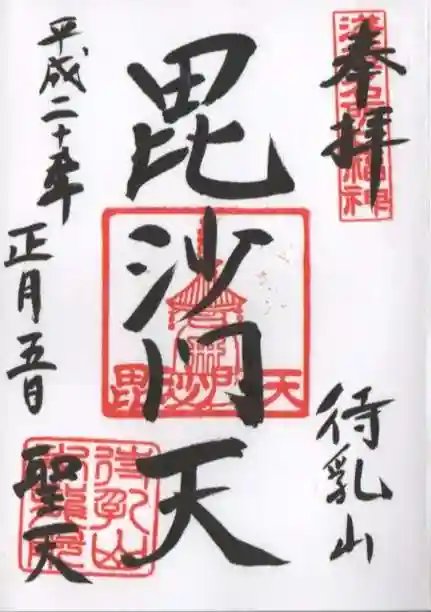 奉拝
浅草名所七福神
待乳山
毘沙門天
毘沙門天
平成二十年
正月五日
聖天
待乳山